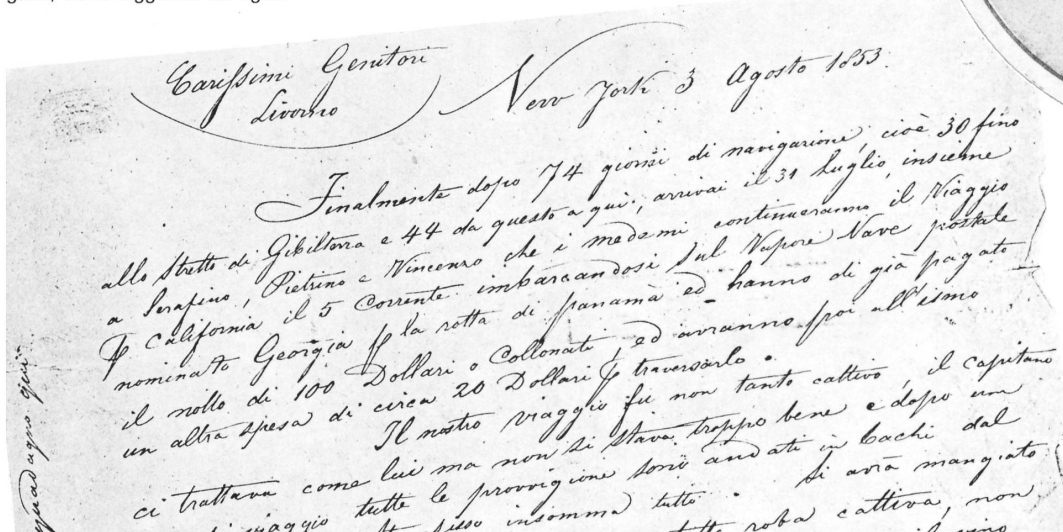 Carissimi Genitori
Livorno
New York 3 Agosto 1853.
Finalmente dopo 74 giorni di navigazione, cioè 30 fino
allo Stretto di Gibilterra e 44 da questo a qui, arrivai il 31 Luglio, insieme
a Serafino, Pietrino e Vincenzo che i medemi continueranno il Viaggio
p California il 5 Corrente imbarcandosi sul Vapore Nave postale
nominato Georgia p la rotta di panamà ed hanno di già pagato
il nollo di 100 Dollari o Collonati, ed avranno poi all'ismo
un altra spesa di circa 20 Dollari p traversarlo.
Il nostro viaggio fu non tanto cattivo, il capitano
ci trattava come lui ma non si stava troppo bene e dopo un
viaggio tutte le provvigione sono andati in bachi dal
insomma tutto. Si avrà mangiato
roba cattiva, non
il vino
guadagno qui